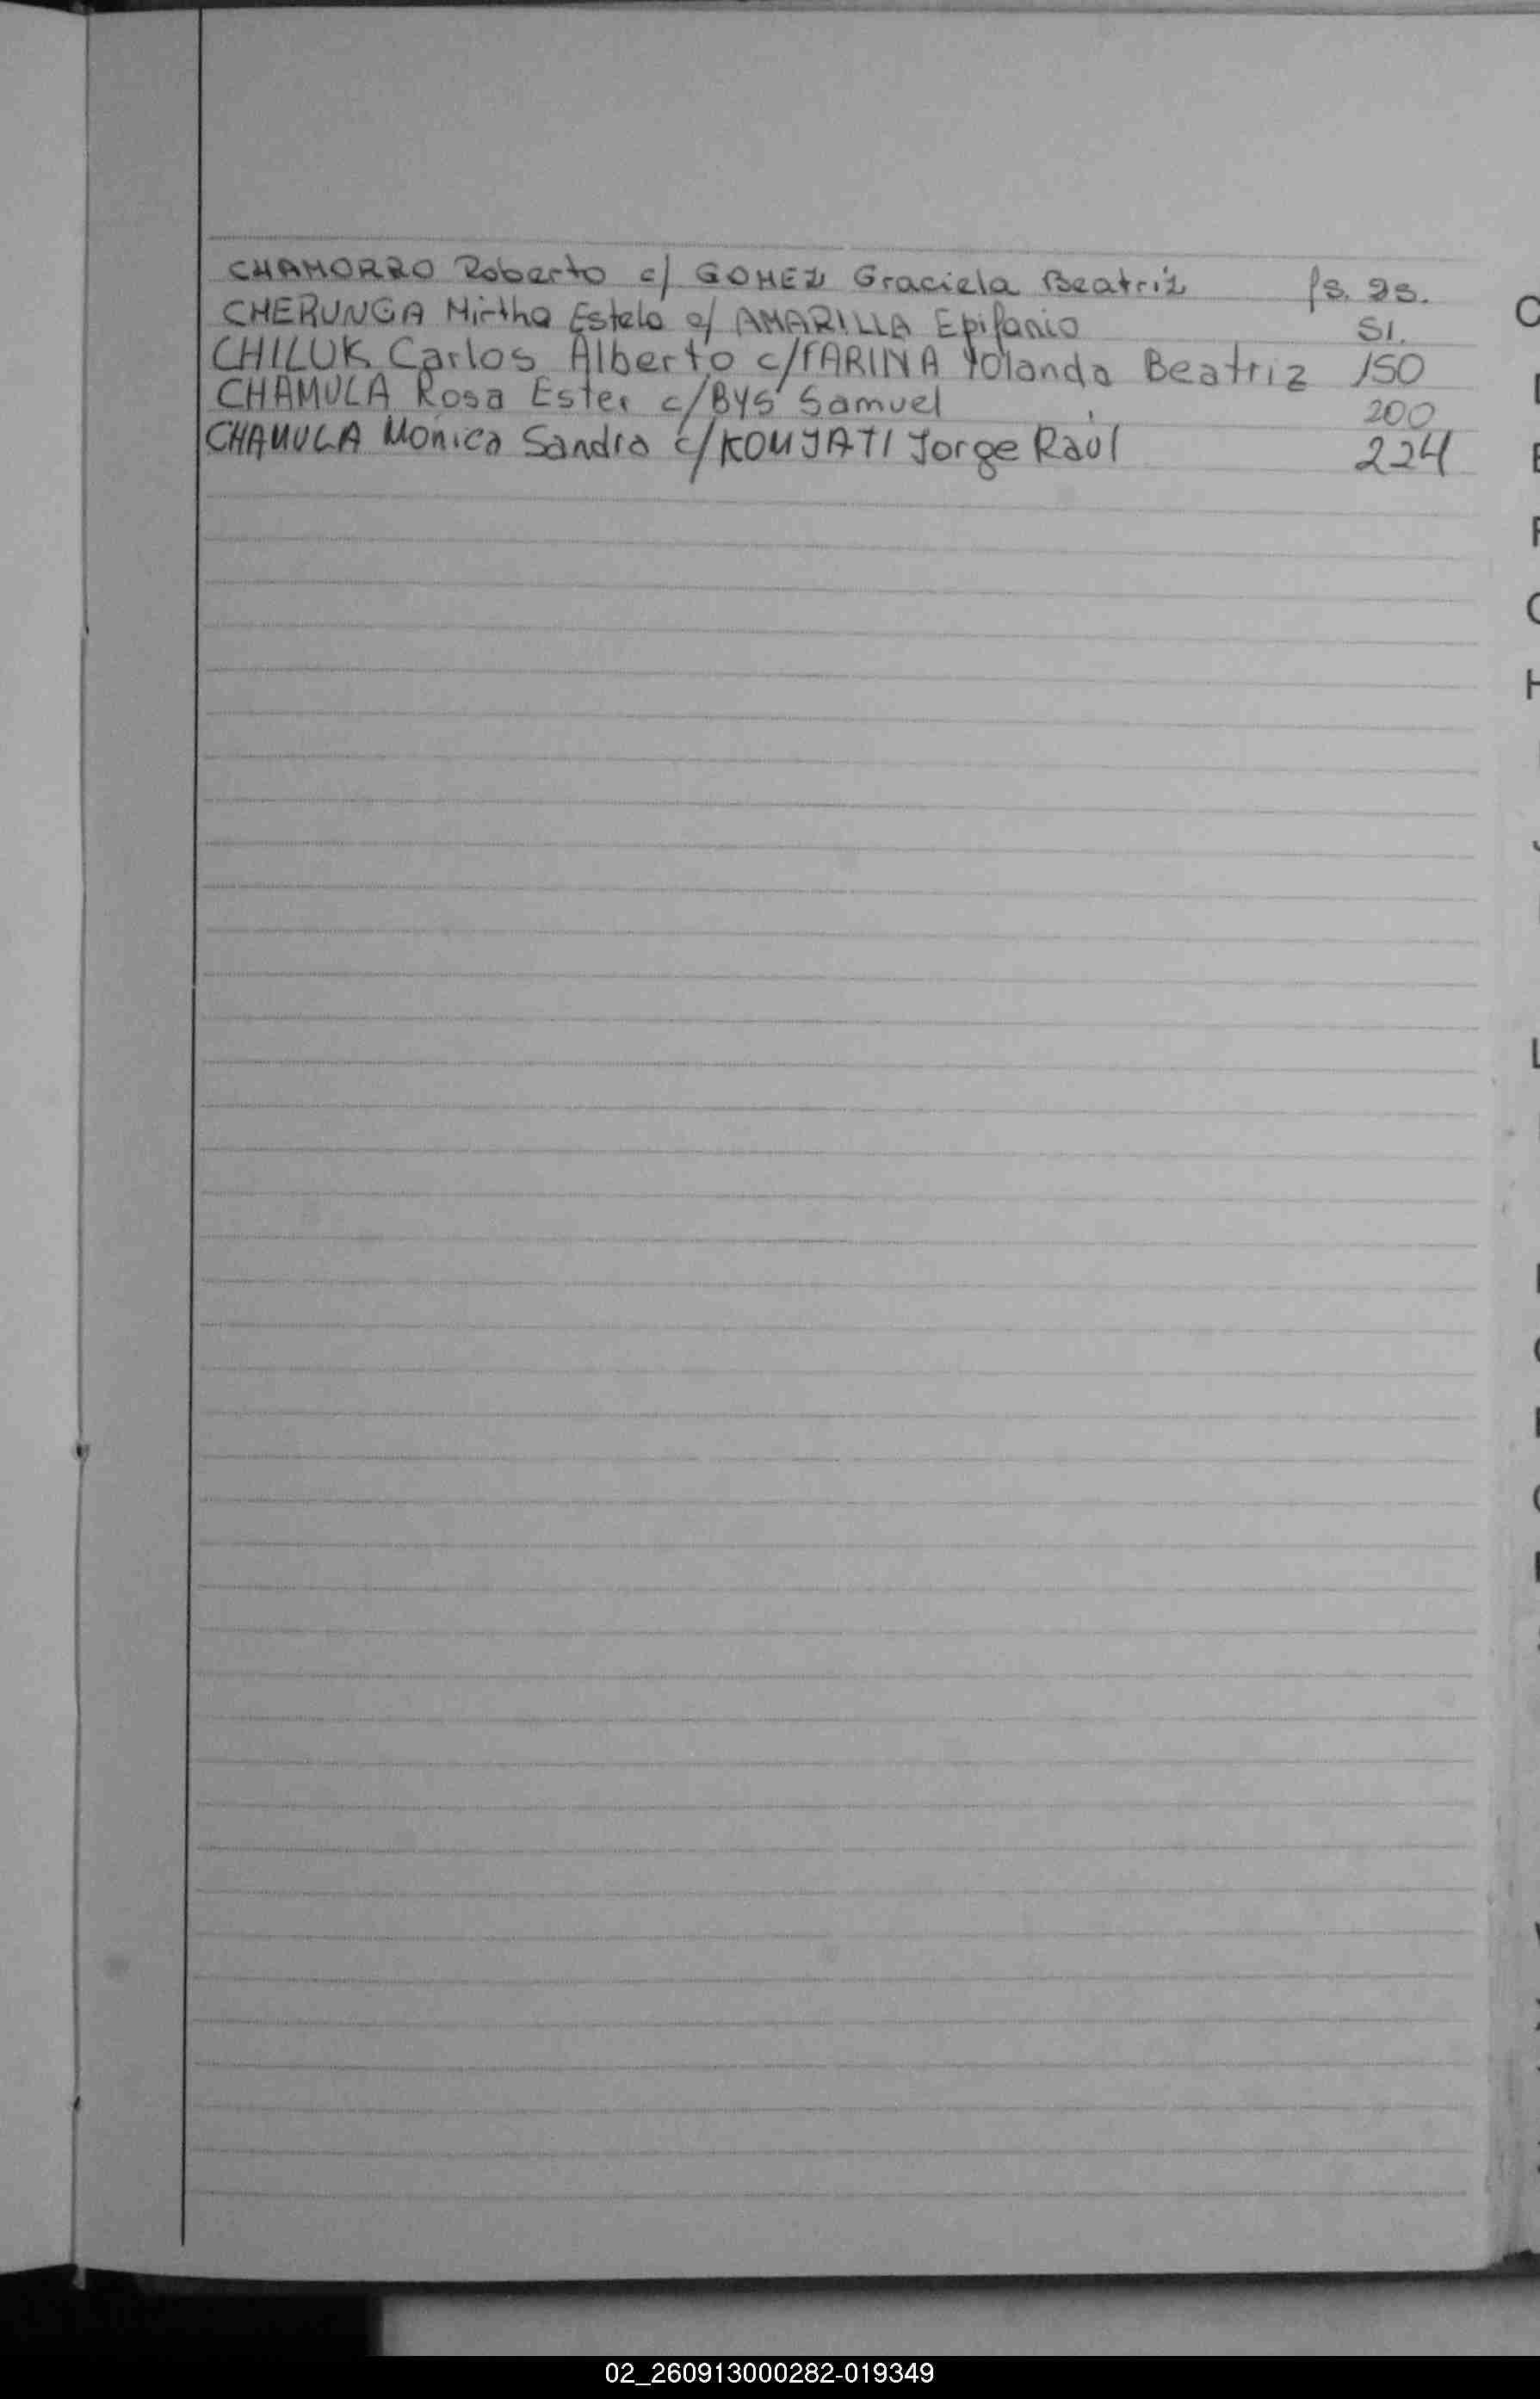 CHAMORRO Roberto c/ GOMEZ Graciela Beatriz fs. 25.
CHERUNGA Mirtha Estela c/ AMARILLA Epifanio 51.
CHILUK Carlos Alberto c/FARINA Yolanda Beatriz 150
CHAMULA Rosa Ester c/BYS Samuel 200
CHAMULA Mónica Sandra c/KOMJATI Jorge Raúl 224
C
E
F
H
L
02_260913000282-019349